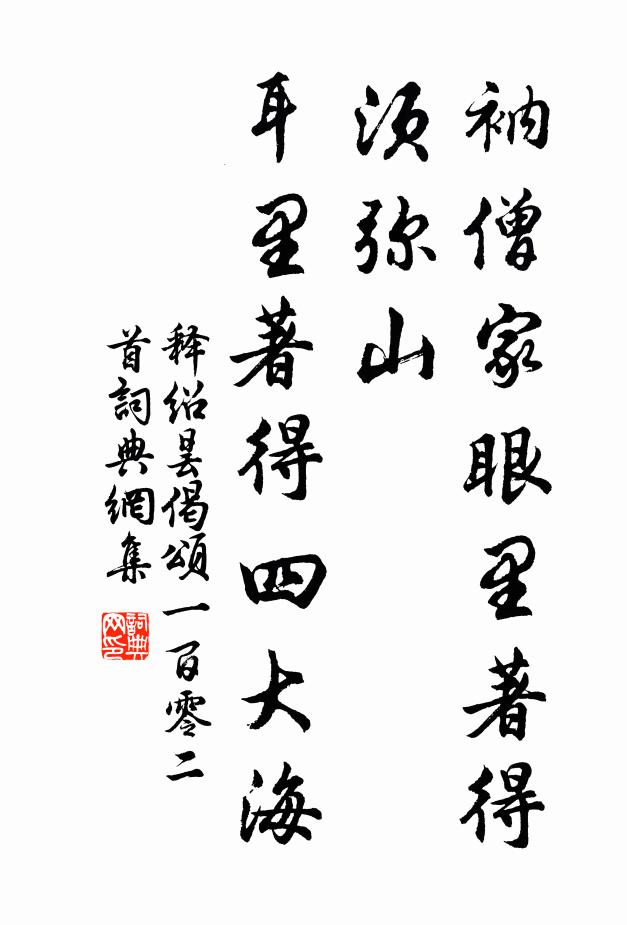 衲僧家眼里著得
须弥山
耳里著得四大海
释绍昙偈頌一百零二
首詞典網集
詞典网印